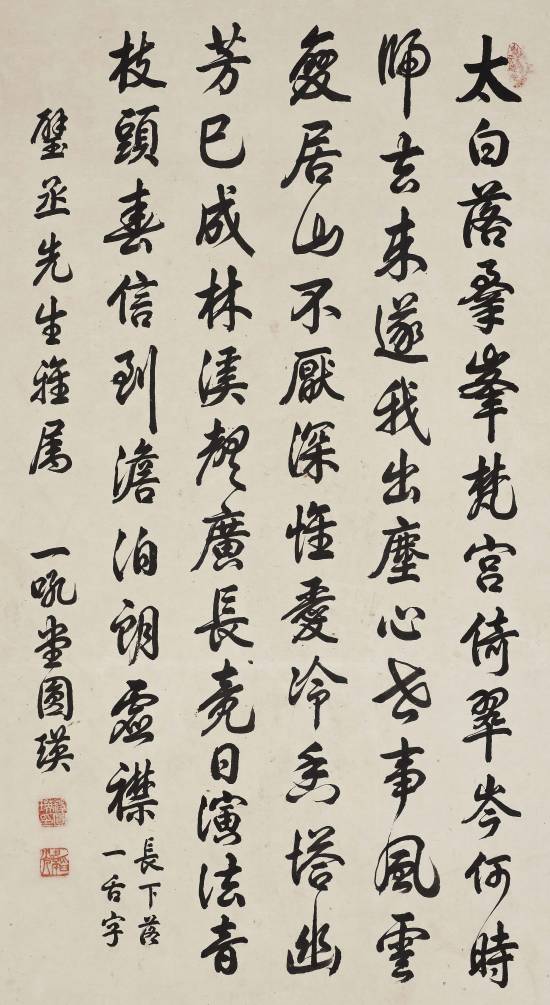 太白落羣峯梵宮倚翠岑何時
師去來遂我出塵心世事風雲
變居山不厭深惟愛冷香塔幽
芳已成林溪聲廣長竟日演法音
枝頭春信到澹泊朗虛襟
長下落
一舌字
璧丞先生雅属 一吼堂圓瑛